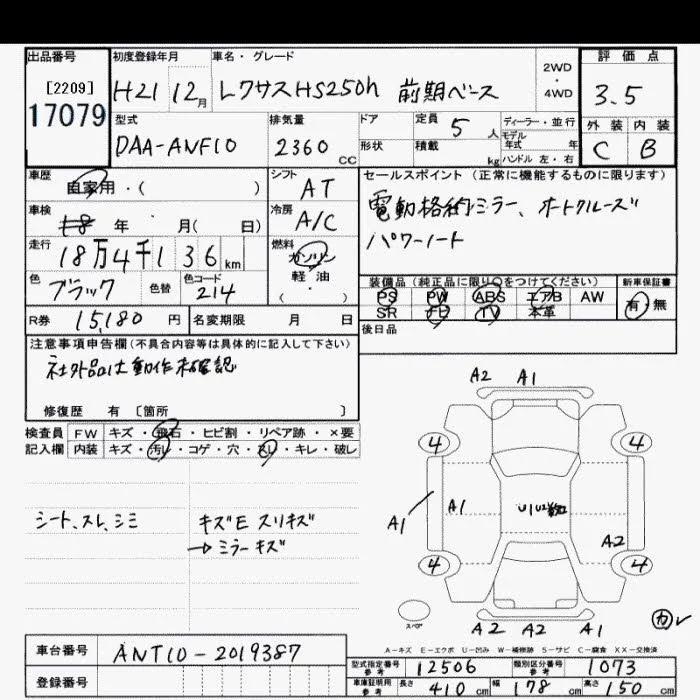 出品番号 初度登録年月 車名・グレード 2WD・4WD 評価点
[2209]
17079
H21 12月 レクサスHS250h 前期ベース 3.5
型式 排気量 ドア 定員 5人 ディーラー・並行 外装 内装
DAA-ANF10 2360CC 形状 積載 kg モデル年式 年 C B
ハンドル 左・右
車歴 シフト セールスポイント(正常に機能するものに限ります)
自家用・( ) AT
電動格納ミラー、オートクルーズ
車検 冷房
年 月(日) A/C
パワーノート
走行 燃料
18万4千136km ガソリン
軽・油
( )
色 色替 色コード
ブラック 214
装備品(純正品に限り○をつけてください) 新車保証書
PS PW ABS エアB AW 有・無
SR TV 本革
R券 15,180円 名変期限 月 日
後日品
注意事項申告欄(不具合内容等は具体的に記入して下さい)
社外品は動作未確認
修復歴 有 〔箇所 〕
検査員 FW キズ・飛石・ヒビ割・リペア跡・×要
記入欄 内装 キズ・汚レ・コゲ・穴・スレ・キレ・破レ
シート、スレ、シミ
キズE スリキズ
→ミラーキズ
A2 A1
4 4
A1 A1 U1U2 A2
4 4
スペア
A2 A2 A1
A-キズ E-エクボ U-凹み W-補修跡 S-サビ C-腐食 XX-交換済
車台番号 ANF10-2019387
登録番号
型式指定番号 参考 12506 類別区分番号 参考 1073
車庫証明用 参考 長さ 410cm 幅 178cm 高さ 150cm